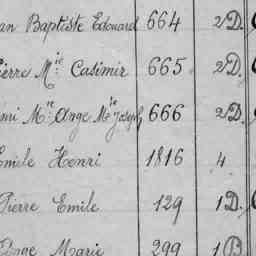 an Baptiste Edouard 664 2 D.
ierre Mie Casimir 665 2 D.
mi Me Ange Mie Joseph 666 2 D.
Emile Henri 1816 4
Pierre Emile 129 1 D.
Ange Marie 299 1 B